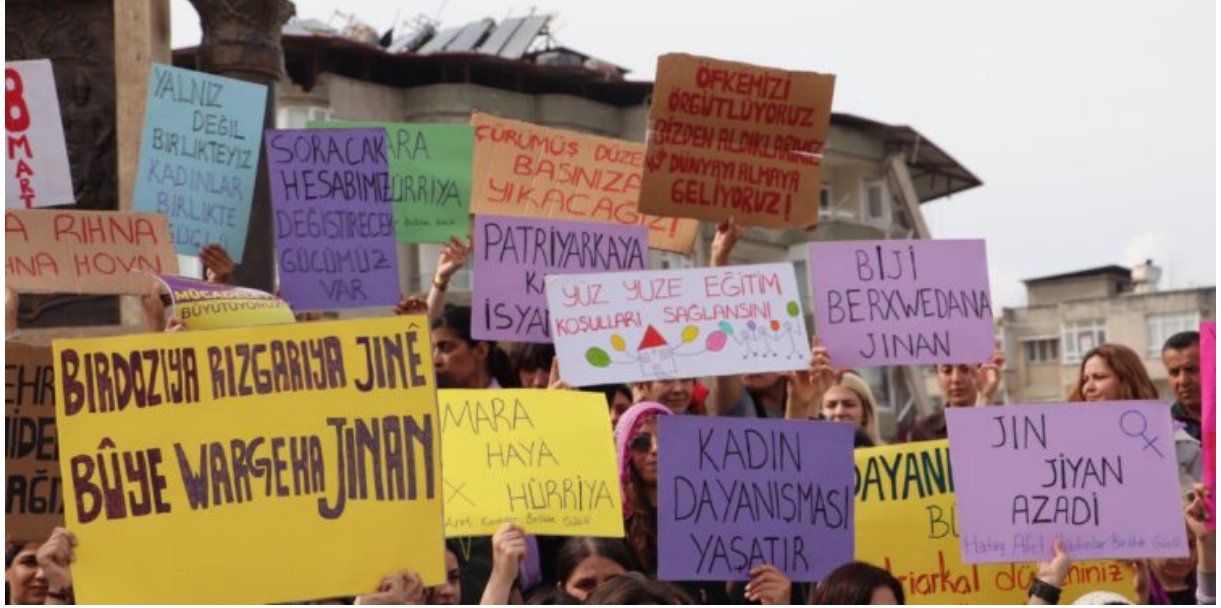 8
MART
YALNIZ
DEĞİL
BİRLİKTEYİZ
KADINLAR
BİRLİKTE
GÜÇLÜ
RIHNA
HOVN
SORACAK
HESABIMIZ
DEĞİŞTİRECEK
GÜCÜMÜZ
VAR
ARA
HÜRRİYA
ÇÜRÜMÜŞ
BAŞINIZA
YIKACAĞIZ!
ÖFKEMİZİ
ÖRGÜTLÜYORUZ
BİZDEN ALDIKLARINIZ
DÜNYAYI ALMAYA
GELİYORUZ!
PATRİYARKAYA
YÜZ YÜZE EĞİTİM
KOŞULLARI SAĞLANSIN!
BIJI
BERXWEDANA
JINAN
BÜYÜTÜYORUZ
BIRDOZIYA RIZGARIYA JINÊ
BÛYE WARGEHA JINAN
MARA
HAYA
X HÜRRİYA
Afet Kadınlar Birlikte Güçlü
KADIN
DAYANIŞMASI
YAŞATIR
JIN
JIYAN
AZADI
Hatay Afet Kadınlar Birlikte Güçlü